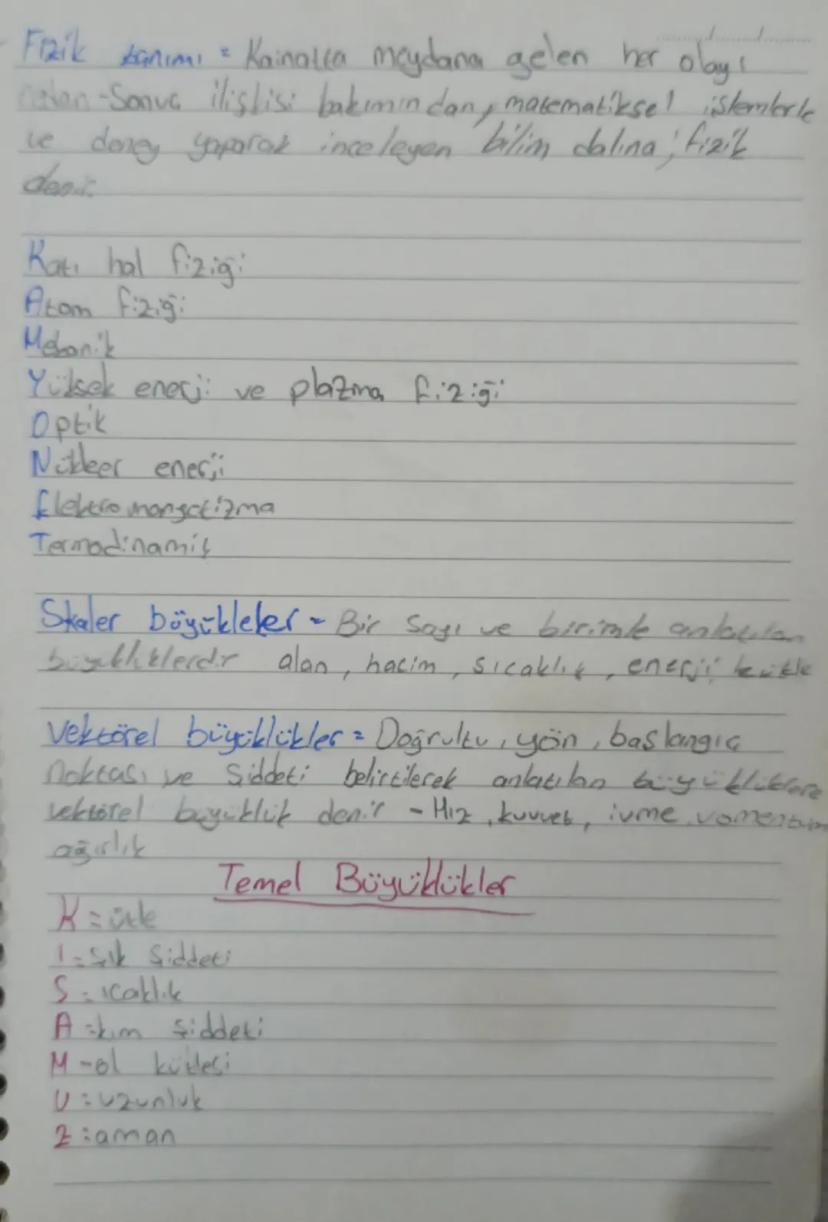 Fizik tanımı = Kainatta meydana gelen her olayı
neden-Sonuc ilişkisi bakımından, matematiksel işlemlerle
ve deney yaparak inceleyen bilim dalına, fizik
denir.
Katı hal fiziği
Atom fiziği
Mekanik
Yüksek enerji ve plazma fiziği
Optik
Nükleer enerji
Elektromangetizma
Termodinamik
Skaler büyükleler = Bir sayı ve birimle anlatılan
büyüklüklerdir alan, hacim, sıcaklık, enerji kütle
Vektörel büyüklükler = Doğrultu, yön, baslangıç
noktası ve Siddeti belirtilerek anlatılan büyüklüklere
vektörel büyüklük denir - Hız, kuvvet, ivme,
ağırlık
Temel Büyüklükler
K = ütle
I = şık Şiddeti
S = ıcaklık
A = kım şiddeti
M - ol kütlesi
U = uzunluk
Z = aman